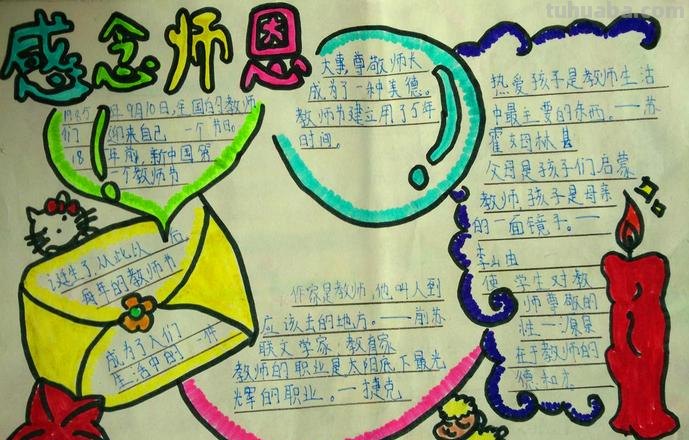 tuhuaba.com
感念师恩
1985年9月10日,全国的教师
们 迎来自己 一个节日。
18 年前,新中国第
一个教师节
诞生了,从此以 后
每年的教师节
成为了人们
生活中的 一件
大事,尊敬师长
成为了一种美德。
教师节建立用了5年
时间。
作家是教师,他叫人到
应该去的地方。——前苏
联文学家、教育家
教师的职业是太阳底下最光
辉的职业。——捷克
热爱孩子是教师生活
中最主要的东西。——苏
霍姆林
父母是孩子们启蒙
教师,孩子是母亲
的一面镜子。——
使 学生对教
师尊敬的
惟一源泉
在于教师的
德和才